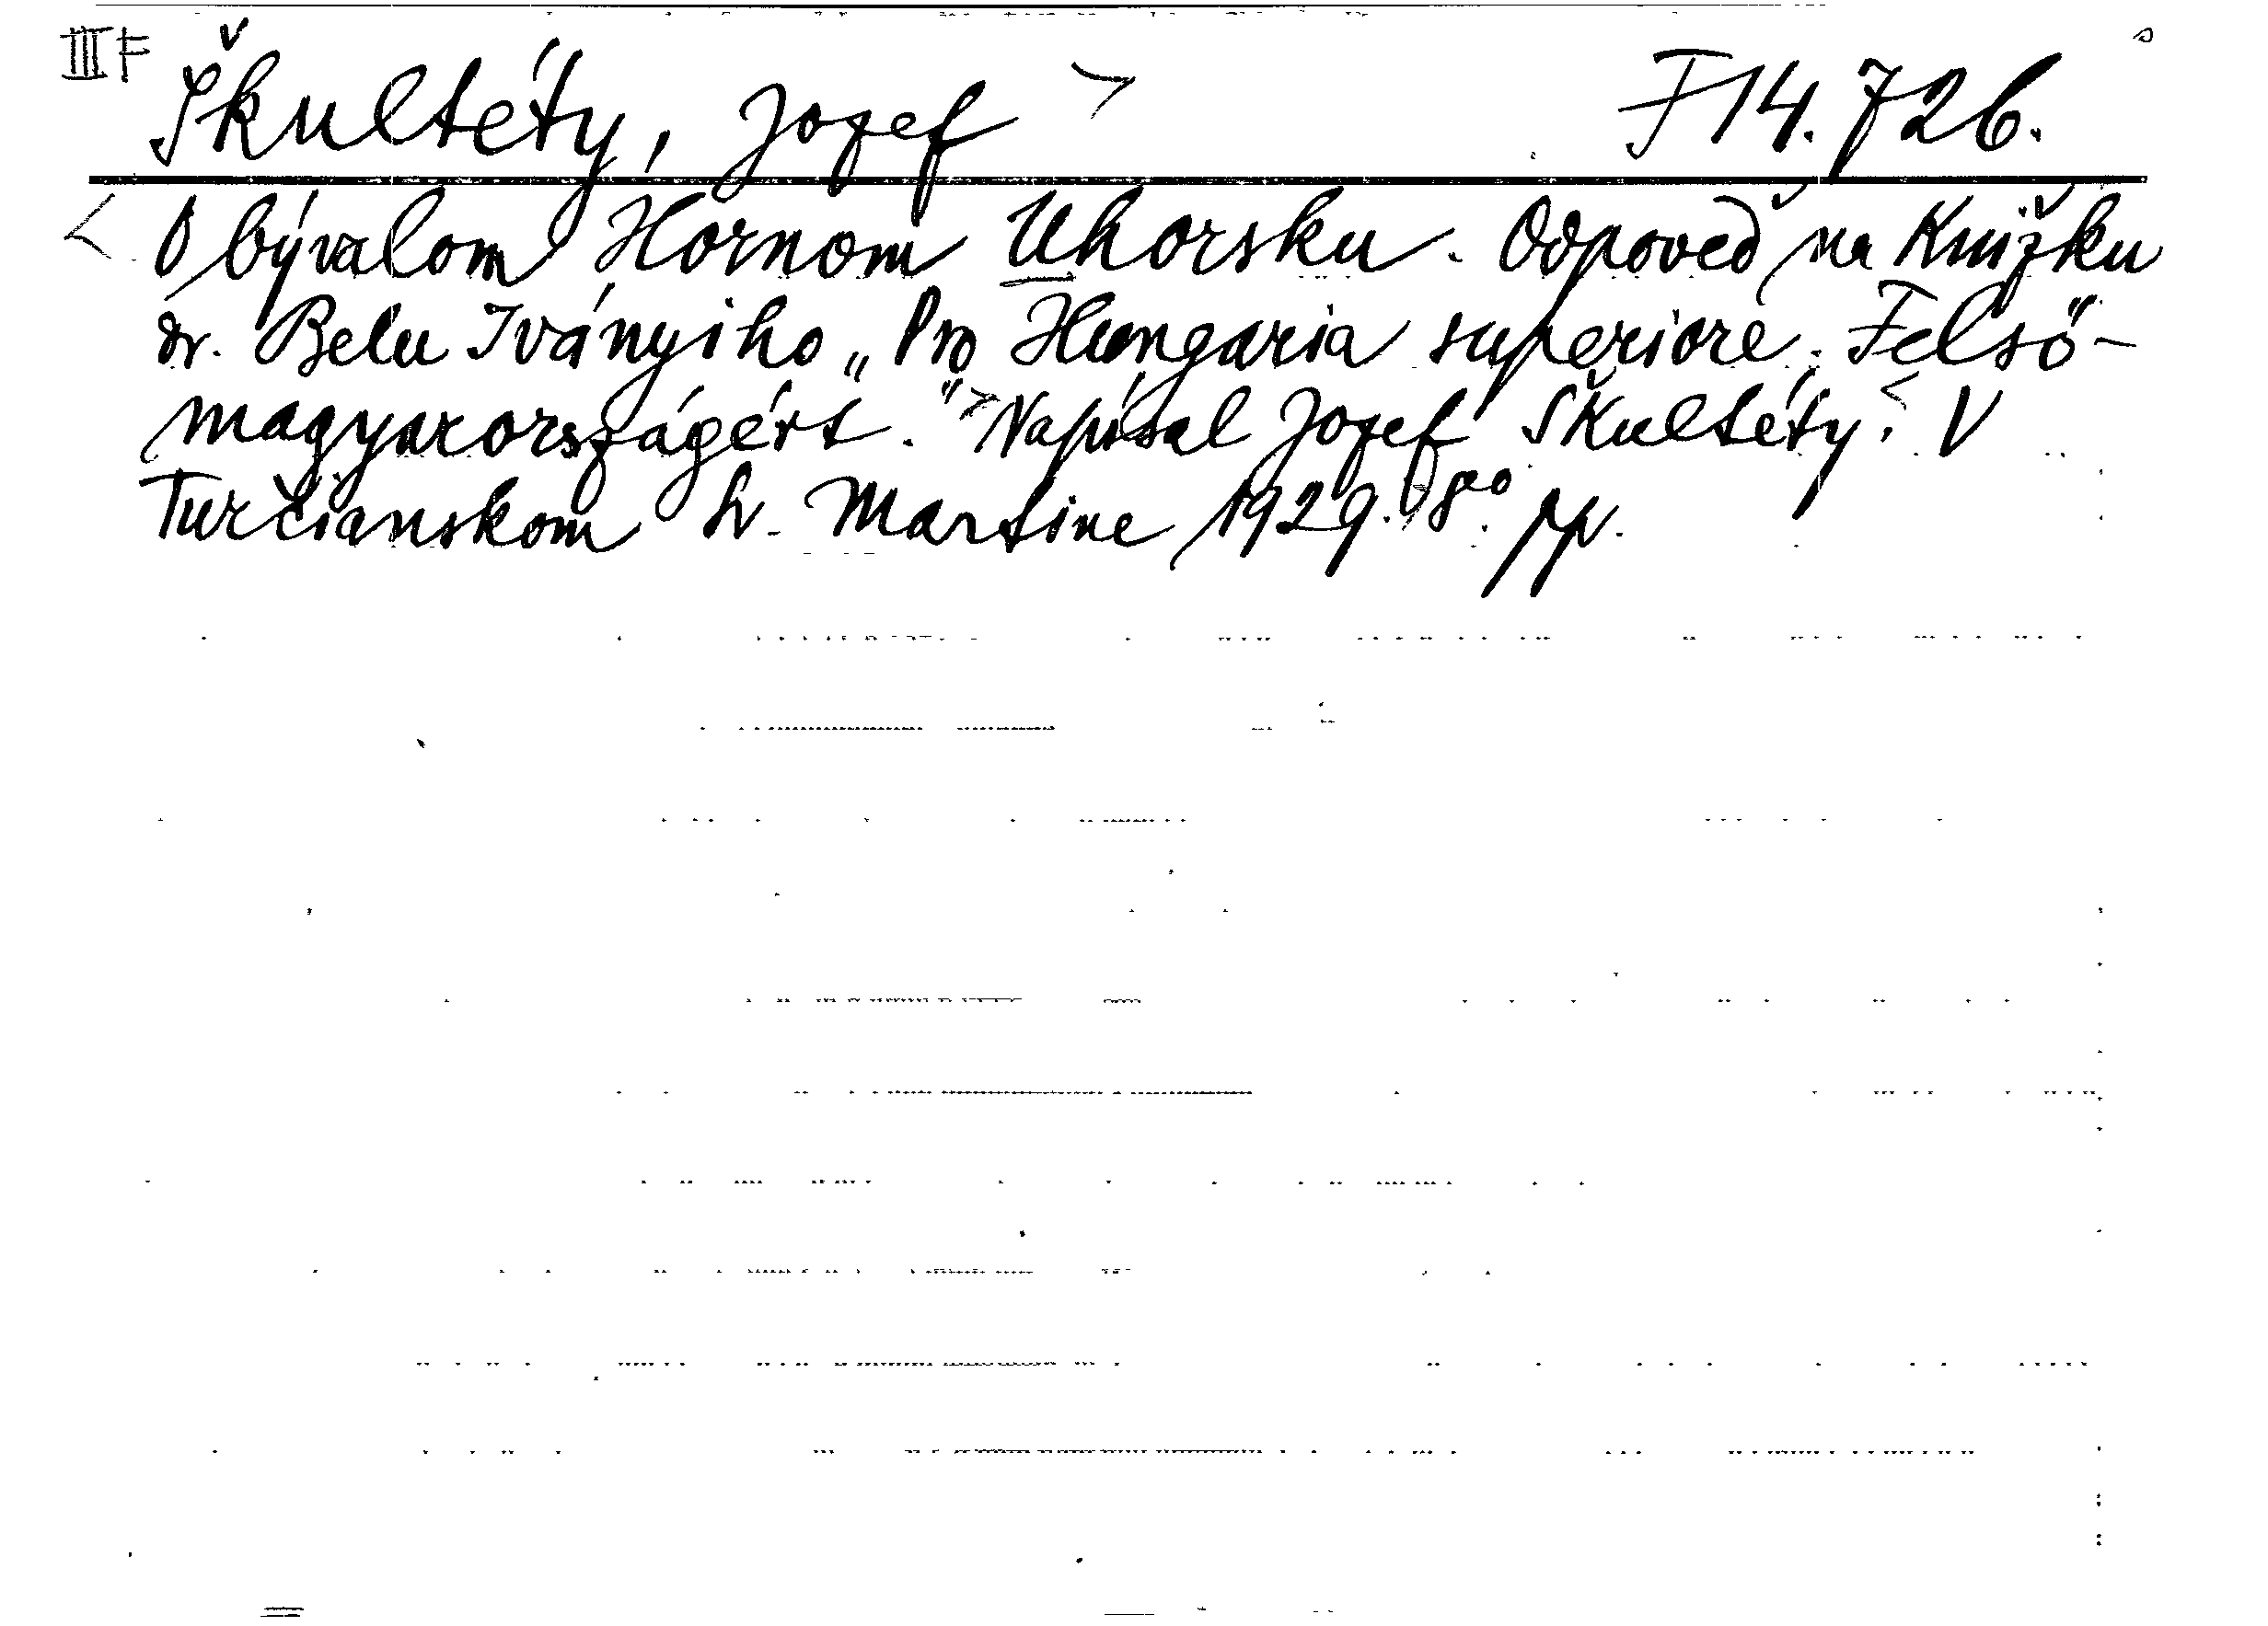 III F
Škultéty, Jozef > F 14.726.
< O bývalom Hornom Uhorsku. Odpoveď na Knižku
dr. Belu Iványiho „Pro Hungaria superiore. Felső-
magyarországért." > Napísal Jozef Škultéty. < V
Turčianskom Sv. Martine 1929. 8°.